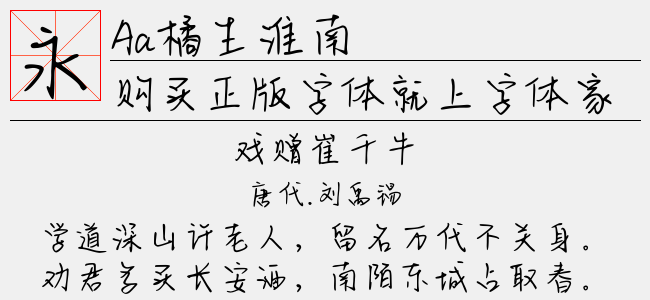 永
Aa橘生淮南
购买正版字体就上字体家
戏赠崔千牛
唐代.刘禹锡
学道深山许老人，留名万代不关身。
劝君多买长安酒，南陌东城占取春。